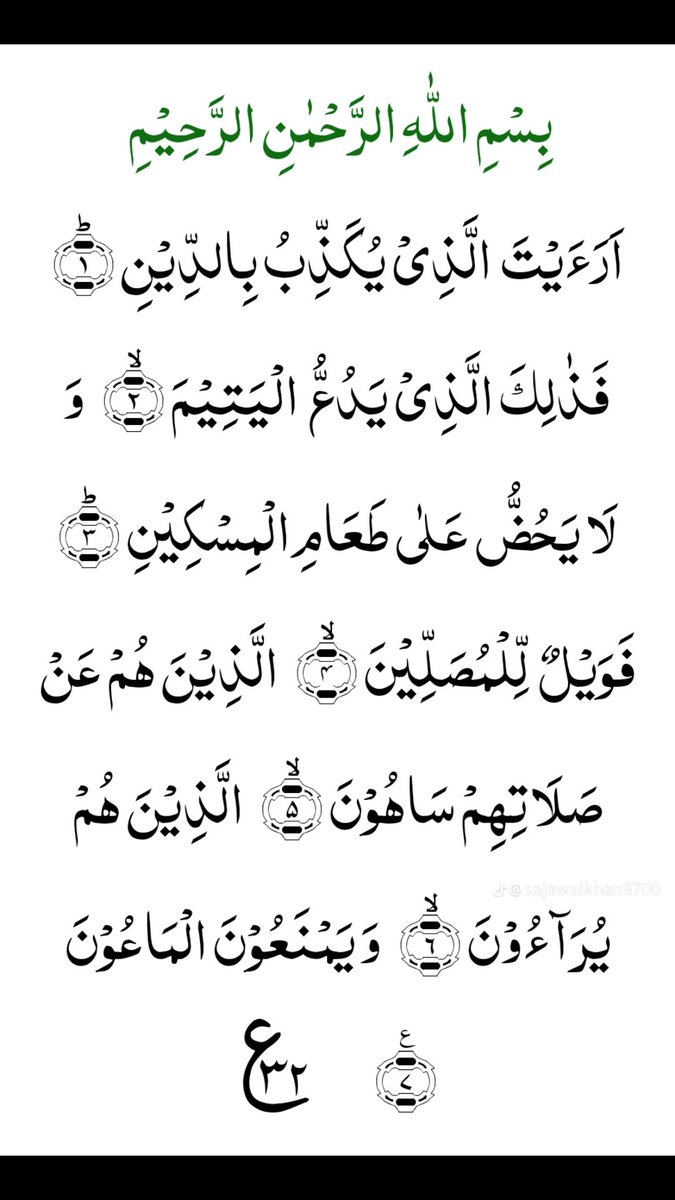 بِسْمِ اللّٰهِ الرَّحْمٰنِ الرَّحِيْمِ
اَرَءَيْتَ الَّذِىْ يُكَذِّبُ بِالدِّيْنِ ؕ‏ ﴿۱﴾
فَذٰلِكَ الَّذِىْ يَدُعُّ الْيَتِيْمَ ۙ‏ ﴿۲﴾ وَ
لَا يَحُضُّ عَلٰى طَعَامِ الْمِسْكِيْنِ ؕ‏ ﴿۳﴾
فَوَيْلٌ لِّلْمُصَلِّيْنَ ۙ‏ ﴿۴﴾ الَّذِيْنَ هُمْ عَنْ
صَلَاتِهِمْ سَاهُوْنَ ۙ‏ ﴿۵﴾ الَّذِيْنَ هُمْ
@sajawalkhan9700
يُرَآءُوْنَ ۙ‏ ﴿۶﴾ وَيَمْنَعُوْنَ الْمَاعُوْنَ
﴿۷﴾ ع ع ۳۲